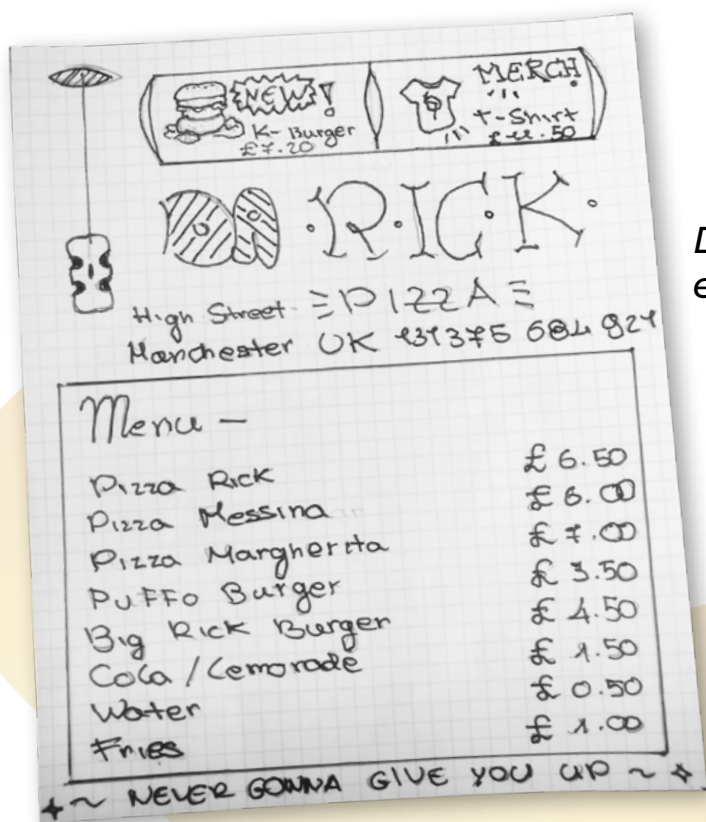 NEW!
K-Burger
£7.20
MERCH!
T-Shirt
DA RICK
PIZZA
High Street
Manchester UK
684 824
Menu –
Pizza Rick £ 6.50
Pizza Messina £ 6.00
Pizza Margherita £ 7.00
Puffo Burger £ 3.50
Big Rick Burger £ 4.50
Cola / Lemonade £ 1.50
Water £ 0.50
Fries £ 1.00
~ NEVER GONNA GIVE YOU UP ~